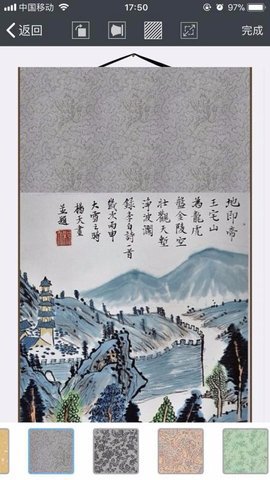 中国移动
17:50
97%
返回
完成
地即帝
王宅山
為龍虎
盤金陵空
壯觀天塹
淨波瀾
錄李白詩一首
歲次丙申
大雪之時
楊天畫
並題